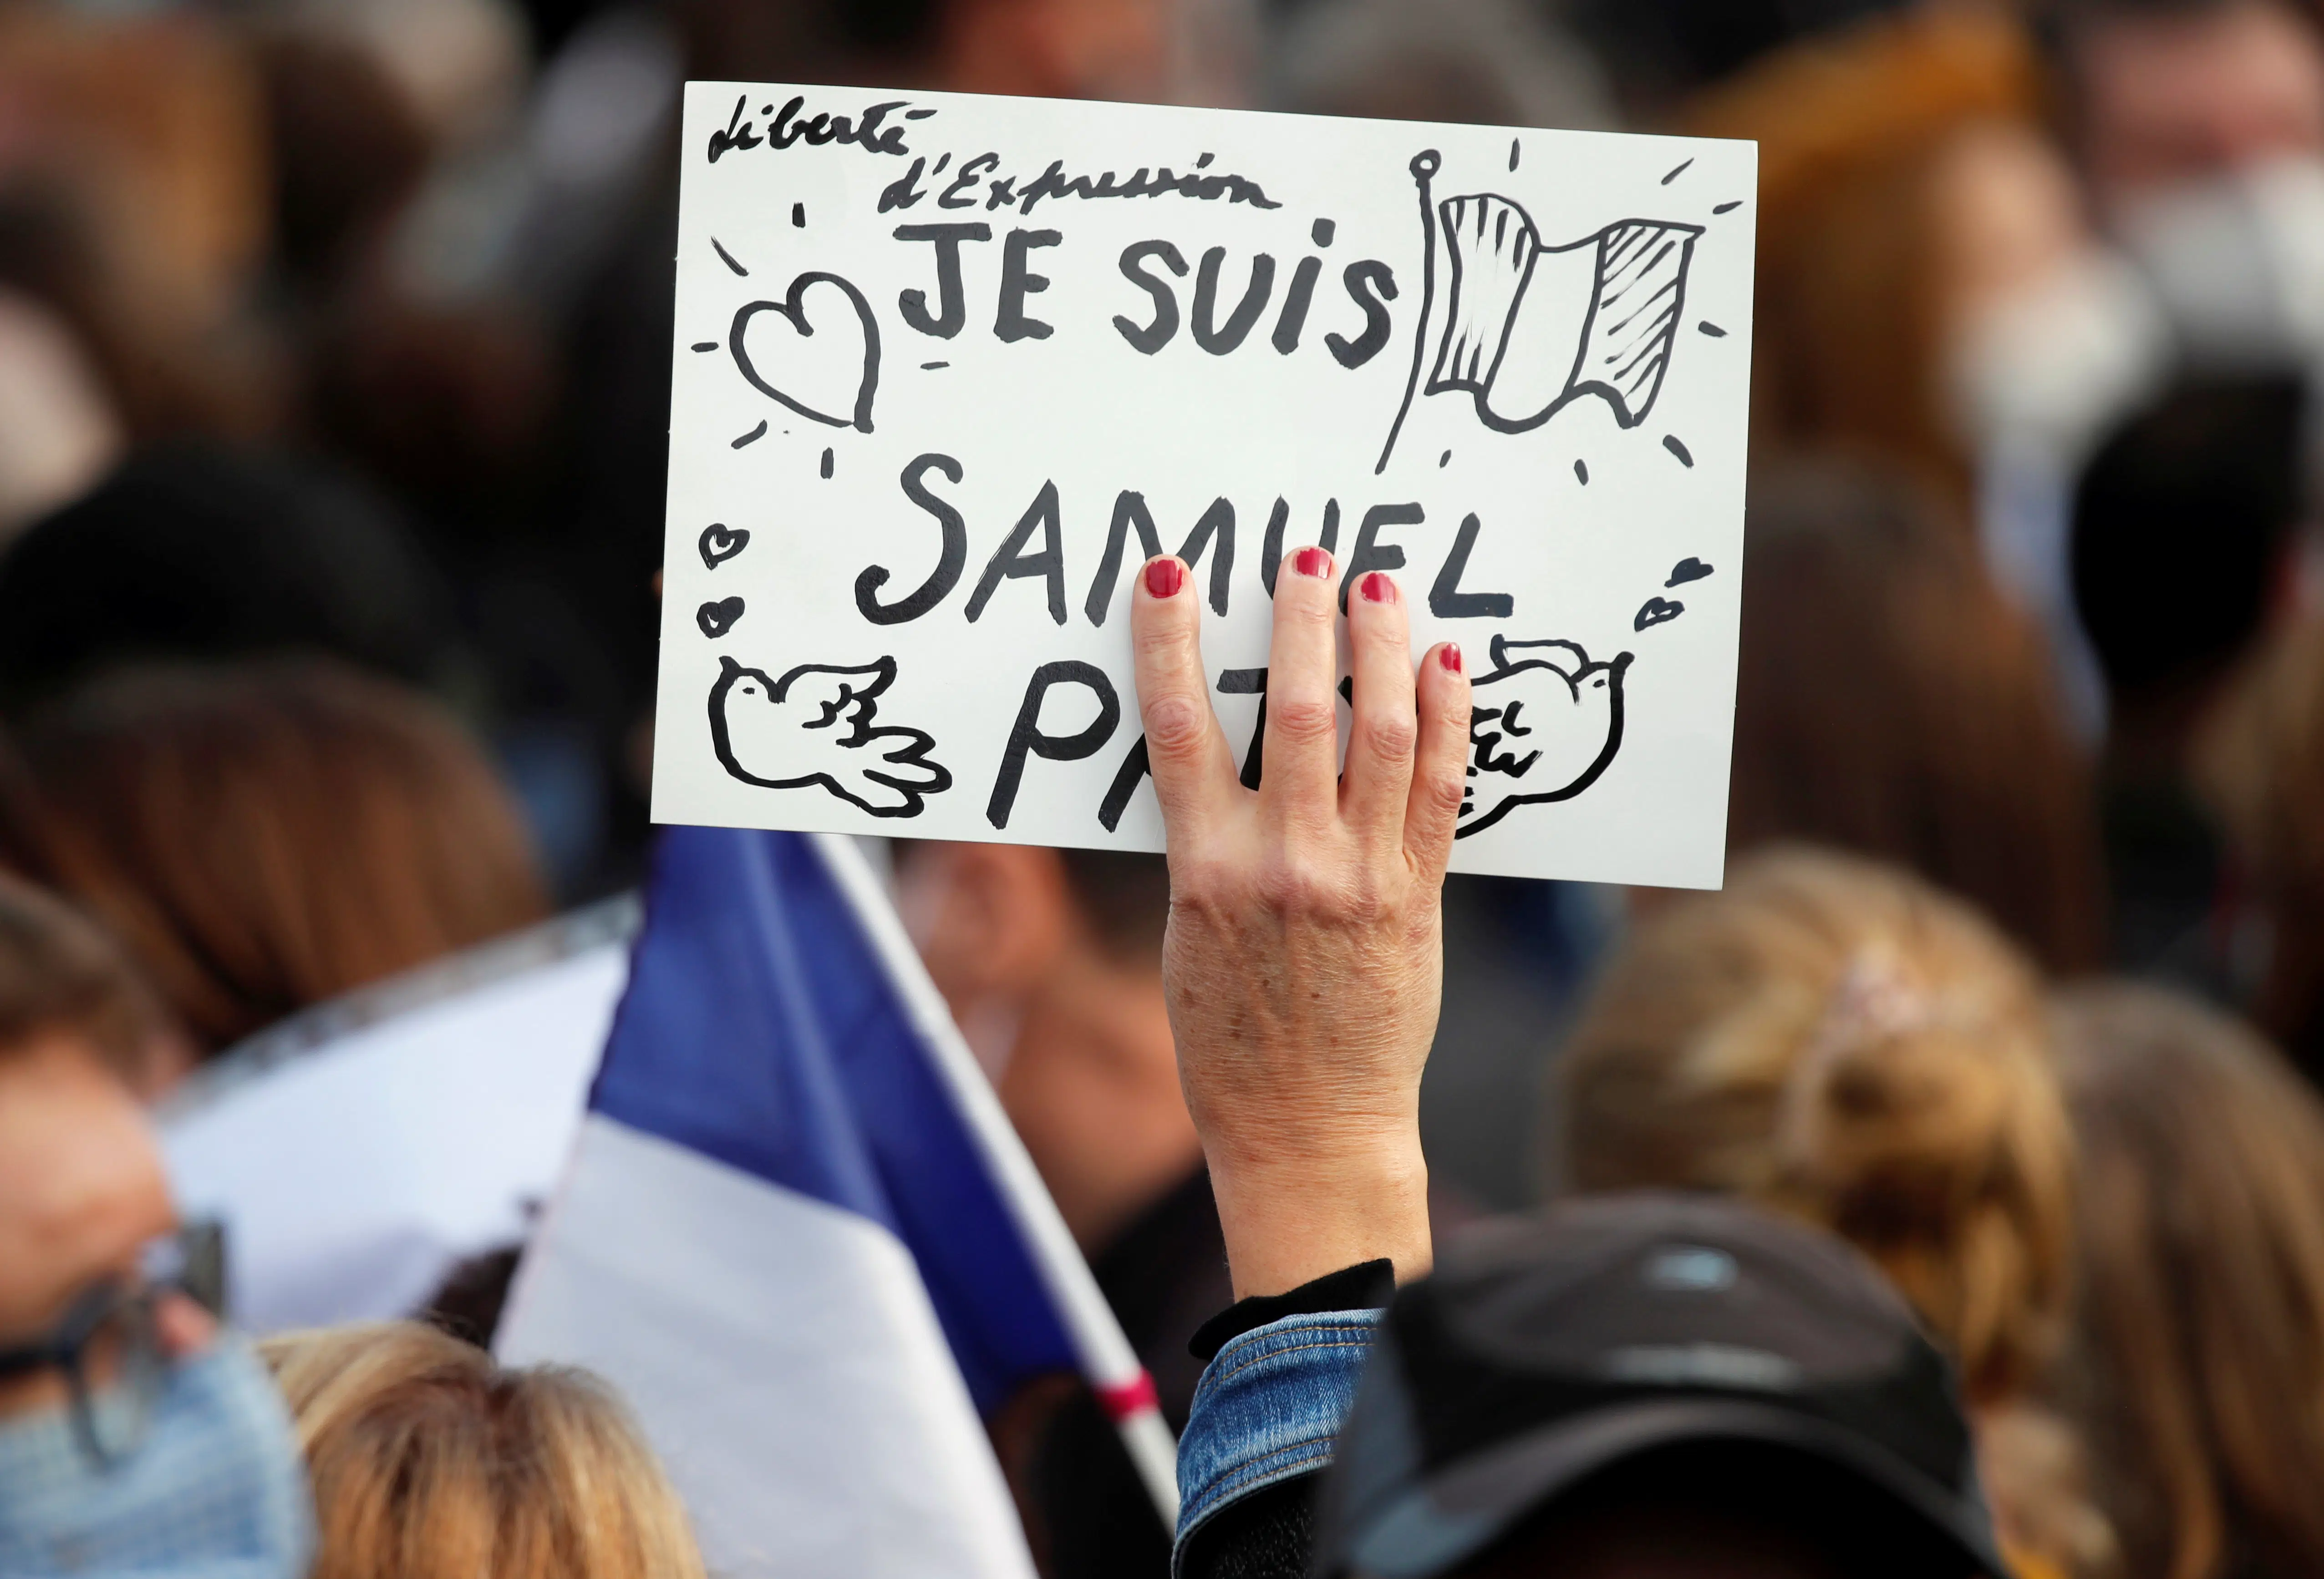 Liberté
d'Expression
JE SUiS
SAMUEL
PATY